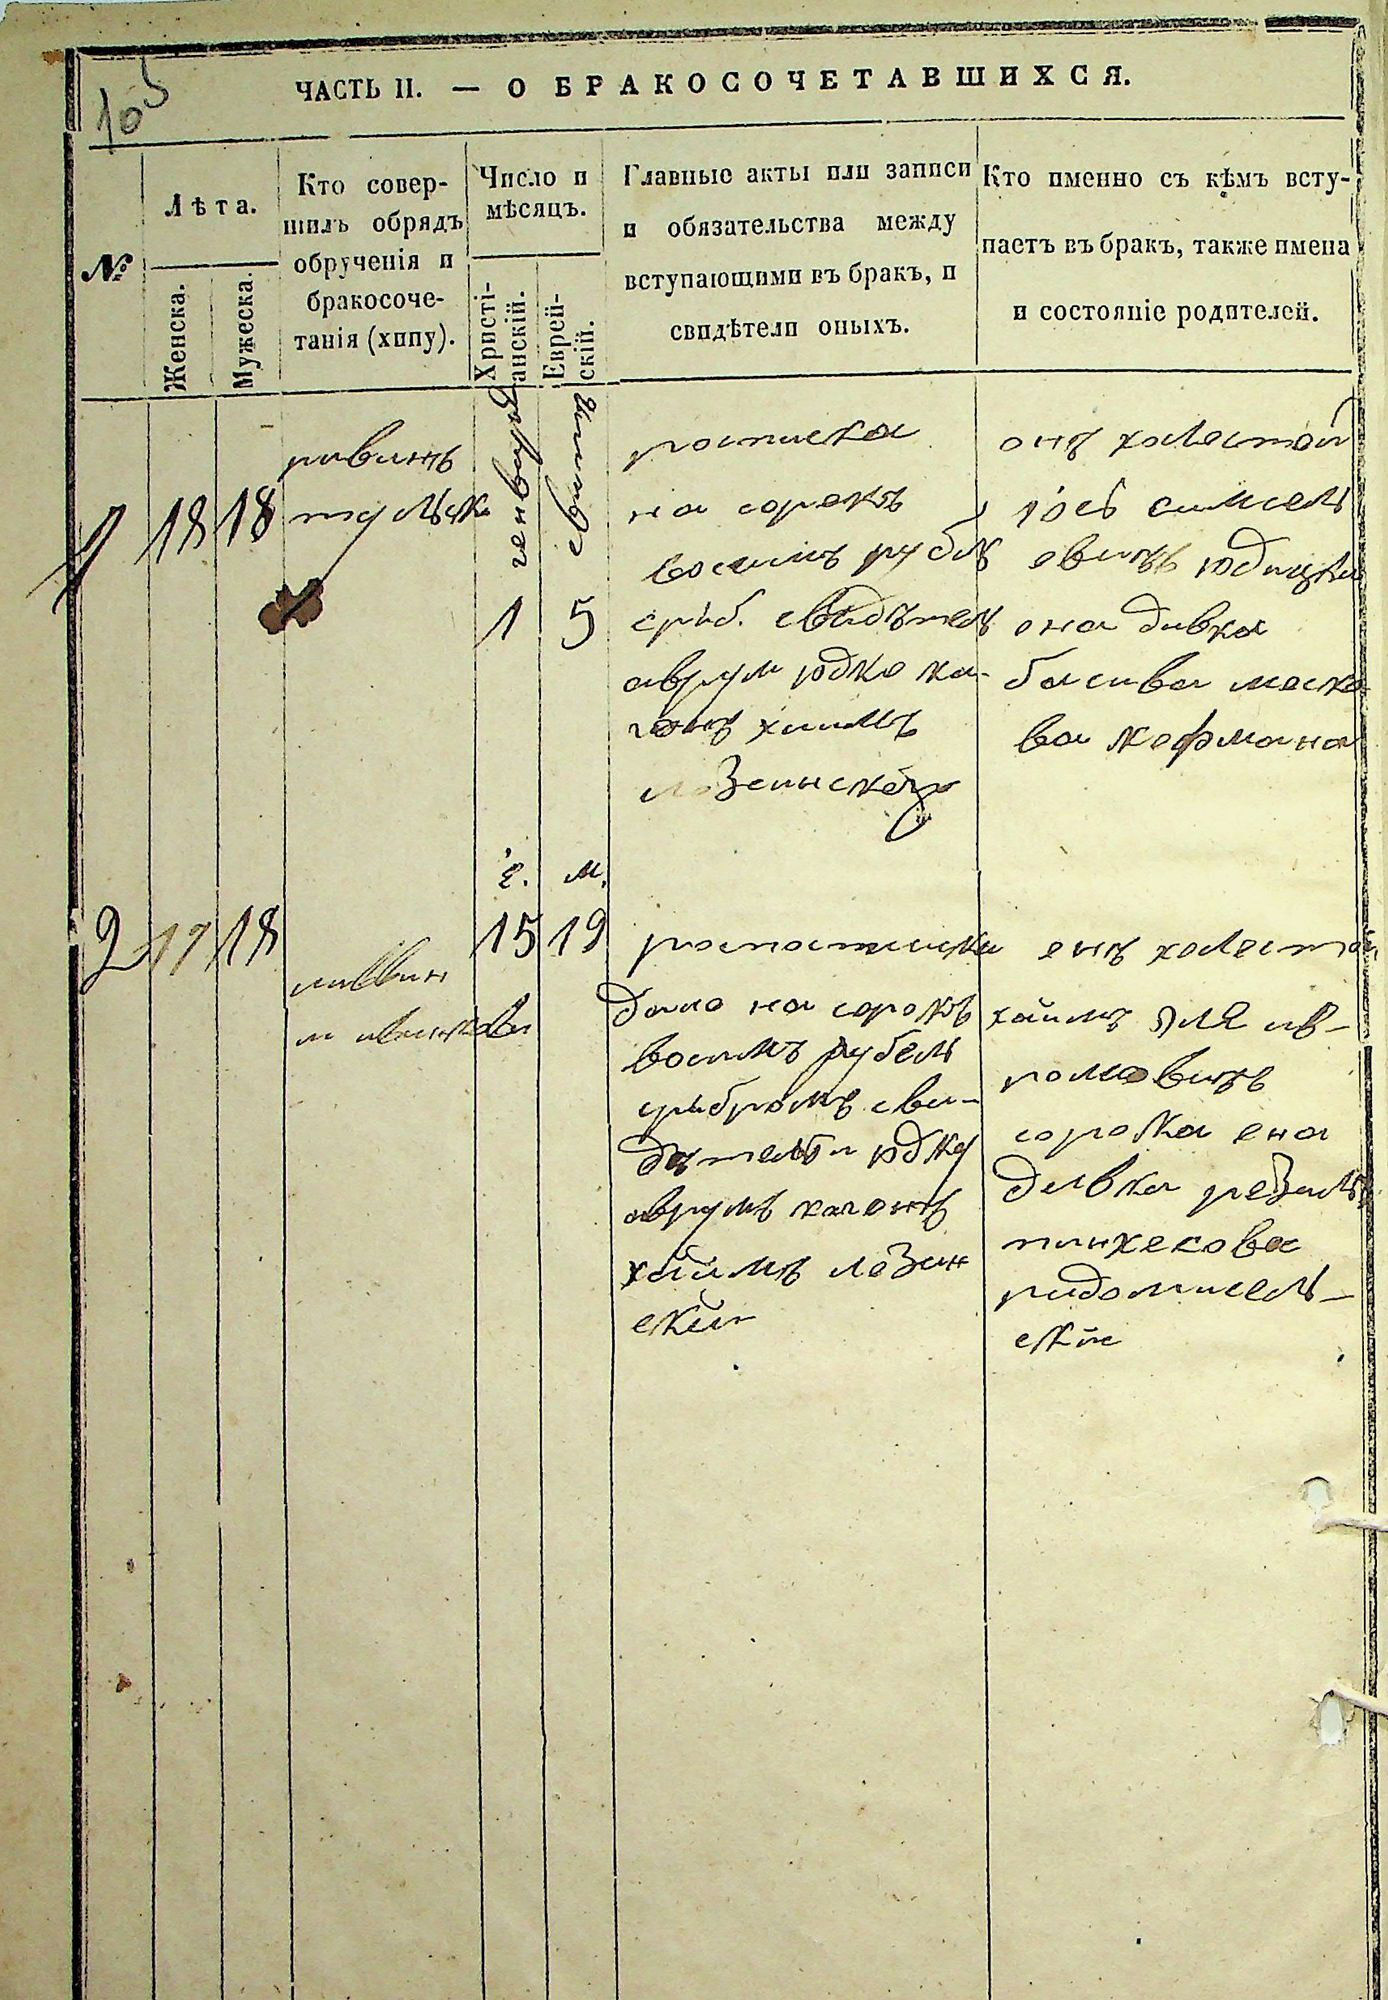 105
ЧАСТЬ II. — О БРАКОСОЧЕТАВШИХСЯ.
№
Лѣта.
Женска.
Мужеска.
Кто совер-
шилъ обрядъ
обрученія и
бракосоче-
танія (хипу).
Число и
мѣсяцъ.
Христі-
анскій.
Еврей-
скій.
Главные акты или записи
и обязательства между
вступающими въ бракъ, и
свидѣтели оныхъ.
Кто именно съ кѣмъ всту-
паетъ въ бракъ, также имена
и состояніе родителей.
1
18
18
равинъ
генворя
1
5
росписка
на сорокъ
восимъ рубль
сриб. свидѣтель
аврум юдко ка-
ганъ хаимъ
лозинскій
онъ холостой
она дивка
басива моска
ва кофмана
г.
м.
2
17
18
15
19
раввин
дано на сорокъ
восимъ рубель
срибромъ сви-
дѣтели юдку
аврумъ каганъ
хаимъ лозин
скій
онъ холостой
хаимъ эля ав-
рамовичъ
сорока она
дивка рейзиль
пинхесова
радомисль-
скій